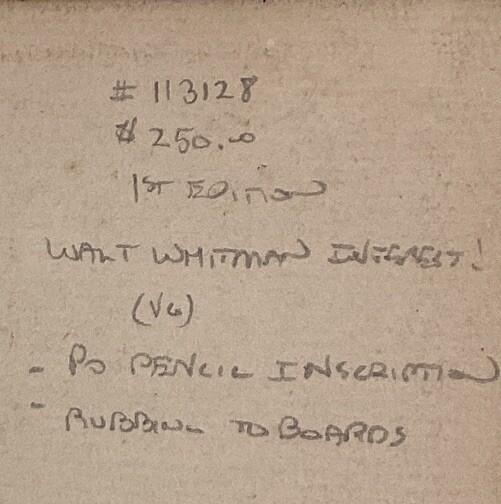 # 113128
$ 250.00
1ST EDITION
WALT WHITMAN INTEREST!
(VG)
- PO PENCIL INSCRIPTION
- RUBBING TO BOARDS